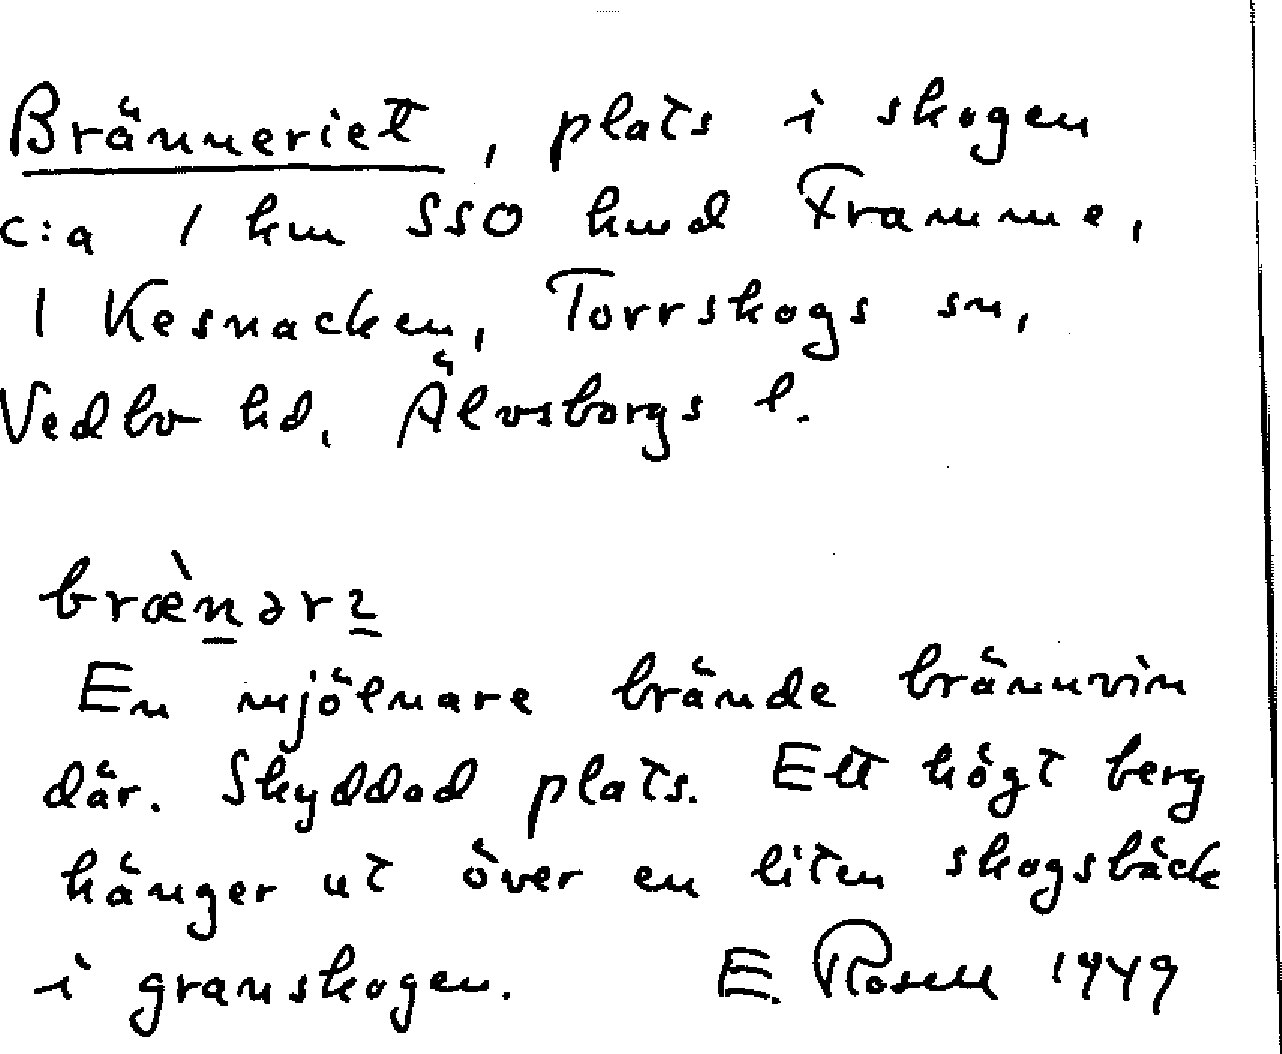 Bränneriet, plats i skogen
c:a 1 km SSO hmd Framme,
1 Kesnacken, Torrskogs sn,
Vedbo hd, Älvsborgs l.
bræ̀n̲ər
En mjölnare brände brännvin
där. Skyddad plats. Ett högt berg
hänger ut över en liten skogsbäck
i granskogen. E. Rosell 1949